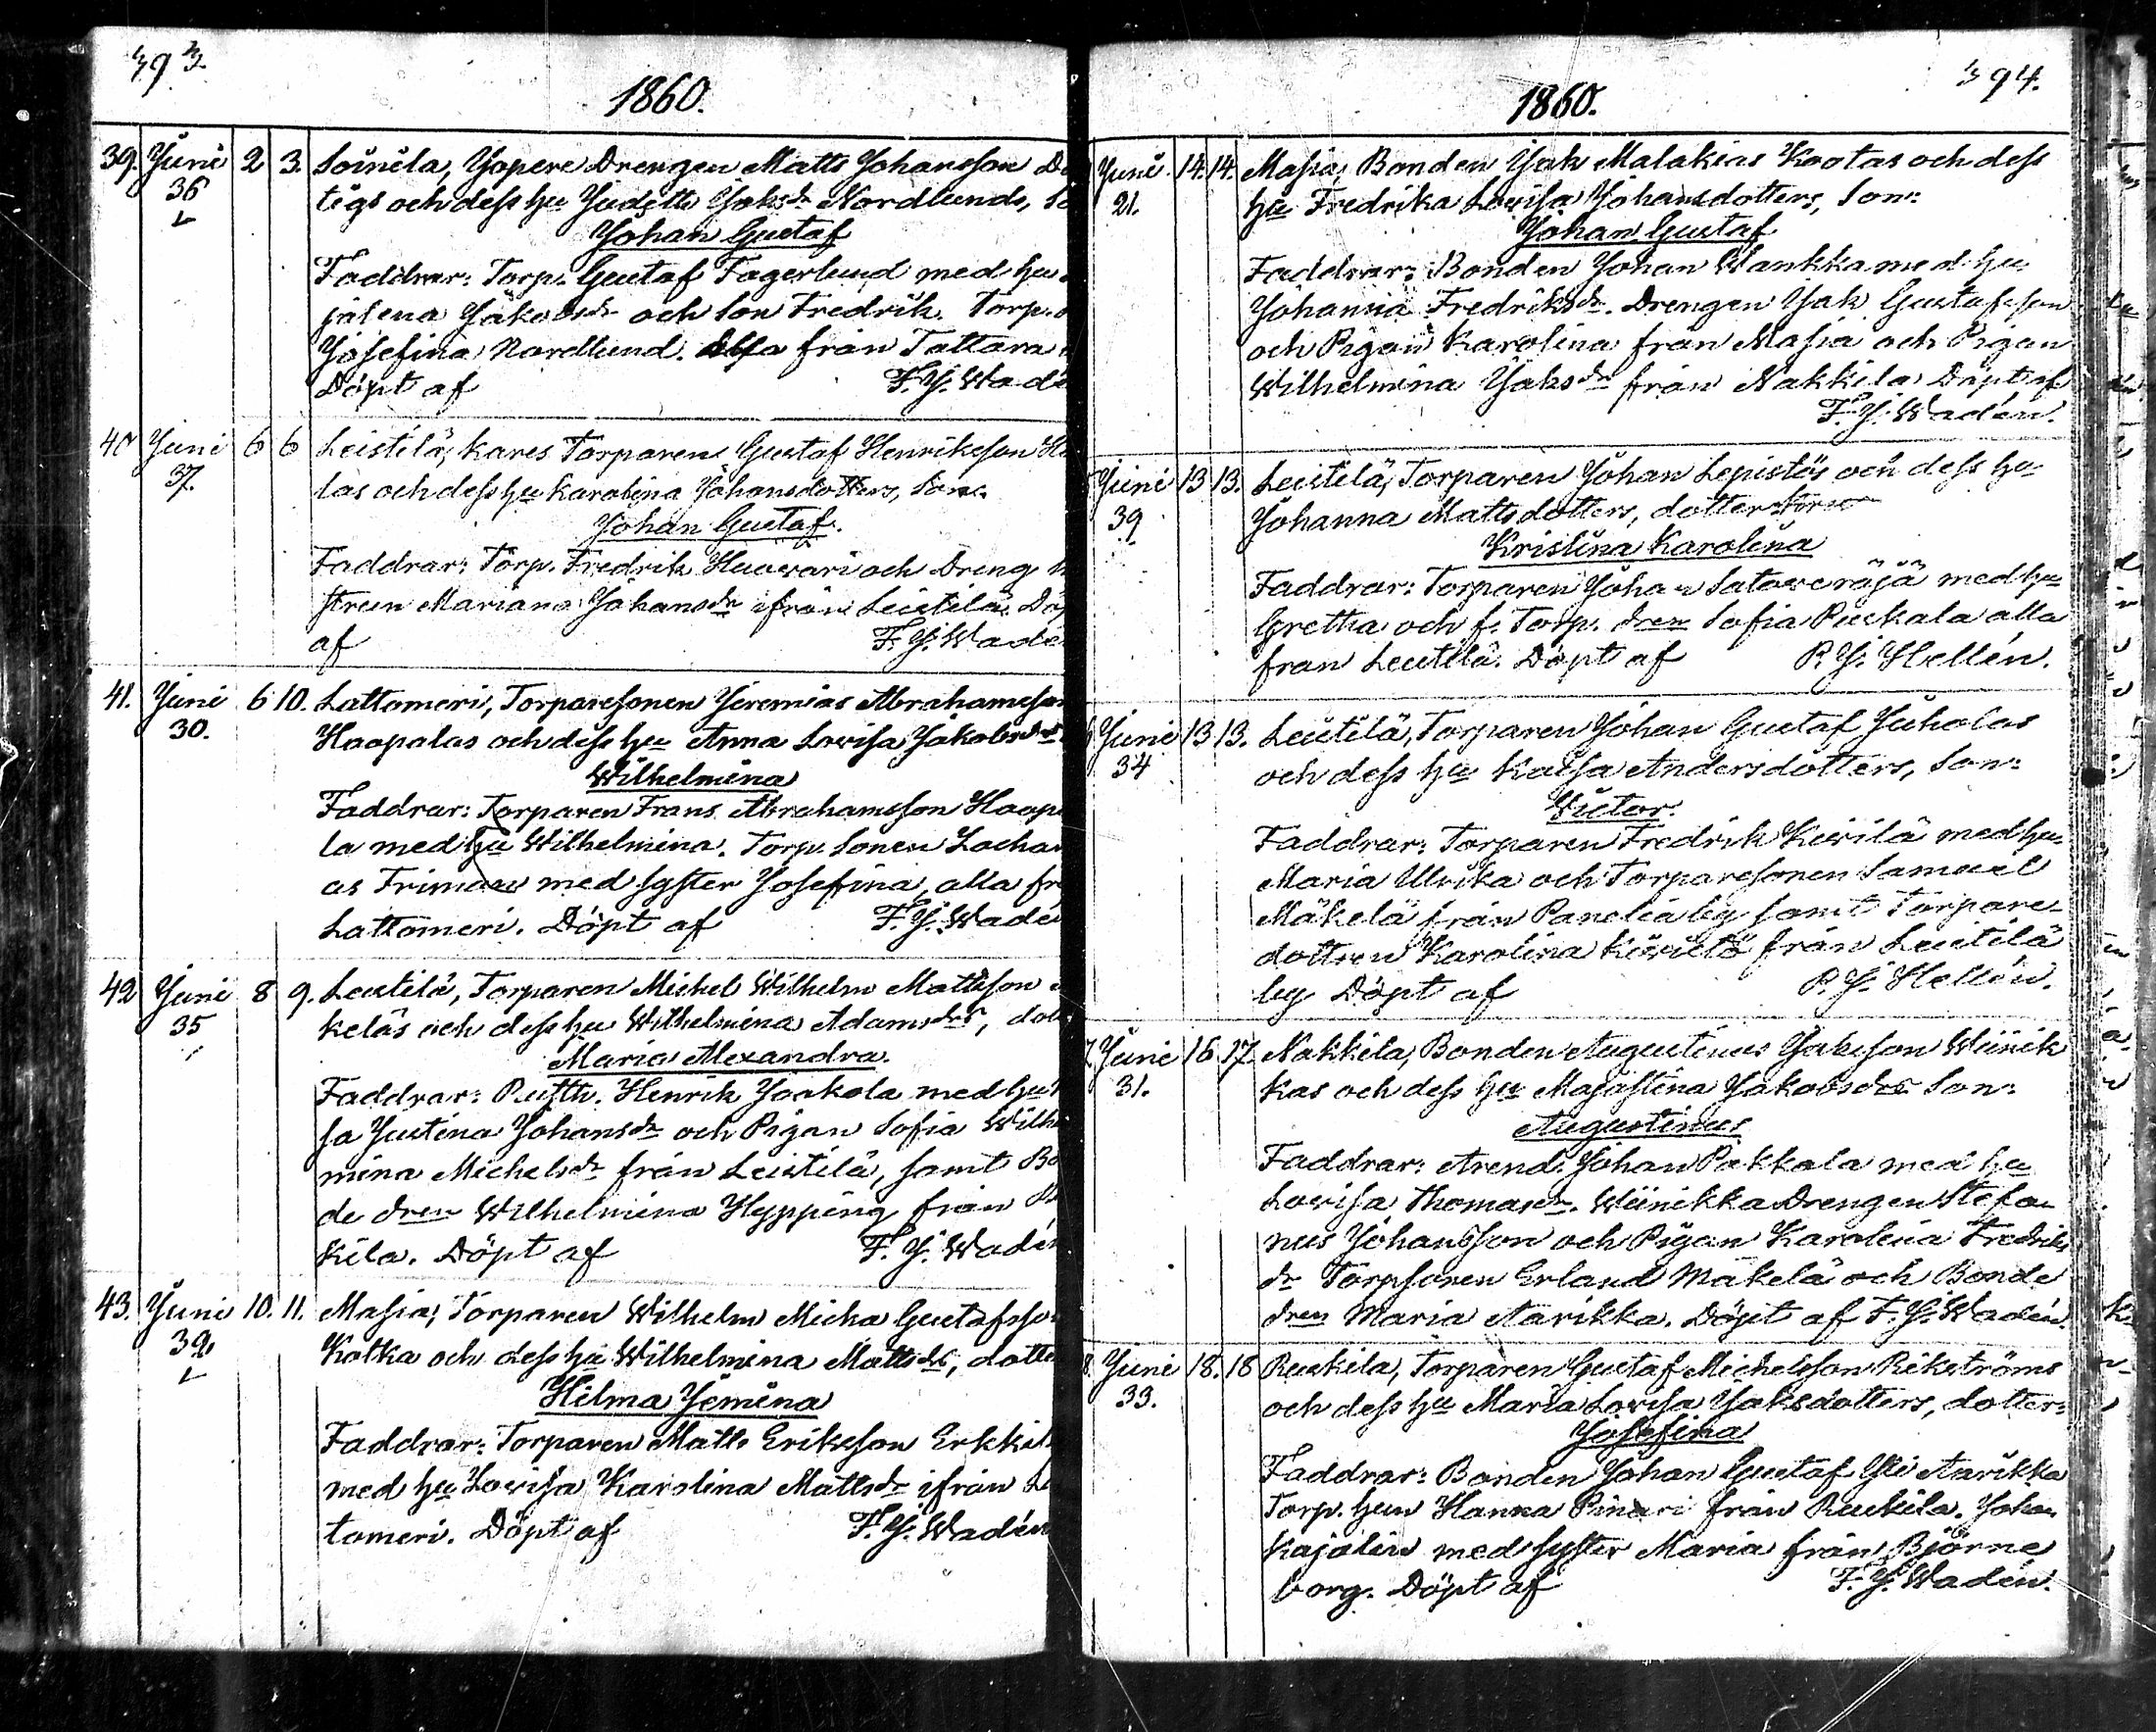 393.
1860.
39. Juni 2 3. Soinila, Jopere Drengen Matts Johansson
36 tigs och dess hu Judith Jaksdr Nordlunds,
Johan Gustaf
Faddrar: Torp. Gustaf Fagerlund med hu
Jakobsdr och son Fredrik. Torp.
Josefina Nordlund. från Tattara
Döpt af F. J. Wadé
40 Juni 6 6 Leistilä, kares Torparen Gustaf Henriksson
37. las och dess hu Karolina Johansdotters, Son:
Johan Gustaf.
Faddrar: Torp. Fredrik Huovari och Dreng
strun Mariana Johansdr ifrån Leistilä. Döp
af F. J. Wadé
41. Juni 6 10. Lattomeri, Torparesonen Jeremias Abrahamsson
30. Haapalas och dess hu Anna Lovisa Jakobsdrs
Wilhelmina
Faddrar: Torparen Frans Abrahamsson Haapa
la med hu Wilhelmina. Torp. Sonen Zachari
as Friman med syster Josefina, alla frå
Lattomeri. Döpt af F. J. Wadén
42 Juni 8 9. Leistilä, Torparen Michel Wilhelm Mattsson
35 keläs och dess hu Wilhelmina Adamsdrs, dott
Maria Alexandra.
Faddrar: Rusth. Henrik Jaakola med hu
sa Justina Johansdr och Pigan Sofia Wilhel
mina Michelsdr från Leistilä, samt Bon
de dren Wilhelmina Hypping från
kila. Döpt af F. J. Wadén
43. Juni 10. 11. Masia, Torparen Wilhelm Micha Gustafsson
32 Kotka och dess hu Wilhelmina Mattsdrs, dotter
Hilma Jemina
Faddrar: Torparen Matts Eriksson Erkkilä
med hu Lovisa Karolina Mattsdr ifrån La
tomeri. Döpt af F. J. Wadén
394.
1860.
Juni 14. 14. Masia, Bonden Jak Malakias Kootas och dess
21. hu Fredrika Lovisa Johansdotters, Son:
Johan Gustaf
Faddrar: Bonden Johan Wankka med hu
Johanna Fredriksdr. Drengen Jak Gustafsson
och Pigan Karolina från Masia och Pigan
Wilhelmina Jaksdr från Nakkila. Döpt af
F. J. Wadén.
Juni 13 13. Leistilä, Torparen Johan Lepistös och dess hu
39 Johanna Mattsdotters, dotter
Kristina Karolina
Faddrar: Torparen Johan Sataveräjä med hu
Gretha och f. Torp. dren Sofia Ruskala alla
från Leistilä. Döpt af P. J. Hellén.
Juni 13 13. Leistilä, Torparen Johan Gustaf Juholas
34 och dess hu Kaisa Andersdotters, Son:
Victor.
Faddrar: Torparen Fredrik Kivilä med hu
Maria Ulrika och Torparesonen Samuel
Mäkelä från Panelia by samt Torpare-
dottren Karolina från Leistilä
by Döpt af P. J. Hellén.
7. Juni 16 17. Nakkila, Bonden Augustinus Jaksson Wiinik
31. kas och dess hu Majastina Jakobsdrs Son:
Augustinus
Faddrar: Arend. Johan Pakkala med hu
Lovisa Thomasdr. Wiinikka Drengen Stefa
nus Johansson och Pigan Karolina Fredriks
dr Torpsonen Erland Mäkelä och Bonde
dren Maria Aarikka. Döpt af F. J. Wadén.
8. Juni 18. 18 Ruskila, Torparen Gustaf Michelsson Rikströms
33. och dess hu Maria Lovisa Jaksdotters, dotter:
Josefina
Faddrar: Bonden Johan Gustaf Yli Aarikka
Torp. hun Hanna Pinari från Ruskila. Johan
Kajalin med syster Maria från Björne
borg. Döpt af F. J. Wadén.